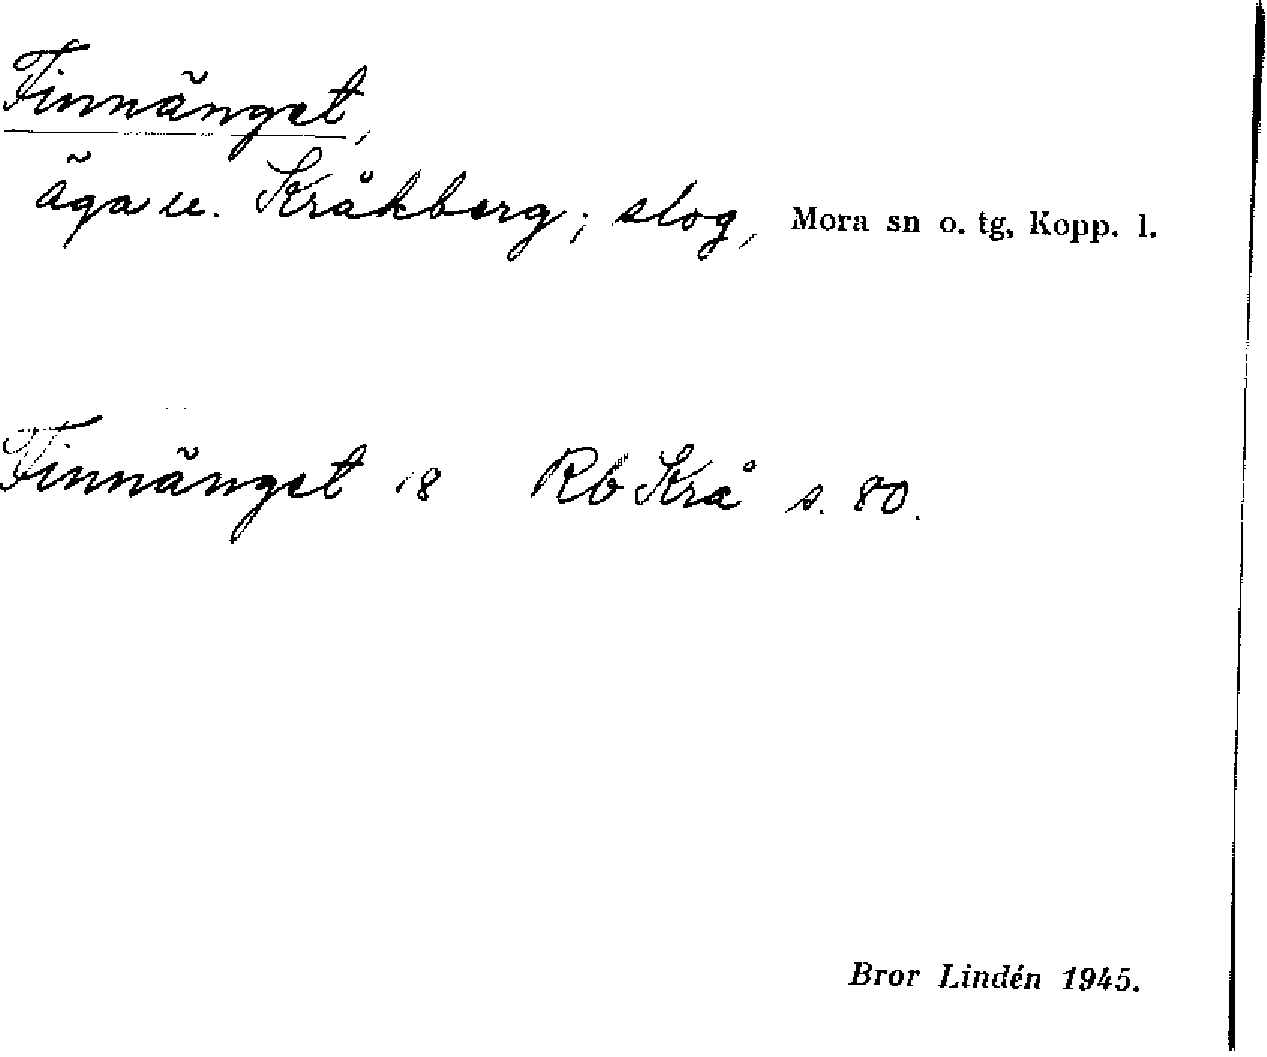 Finnänget,
äga u. Kråkberg; slog, Mora sn o. tg, Kopp. l.
Finnänget 18 Rb Krå s. 80.
Bror Lindén 1945.